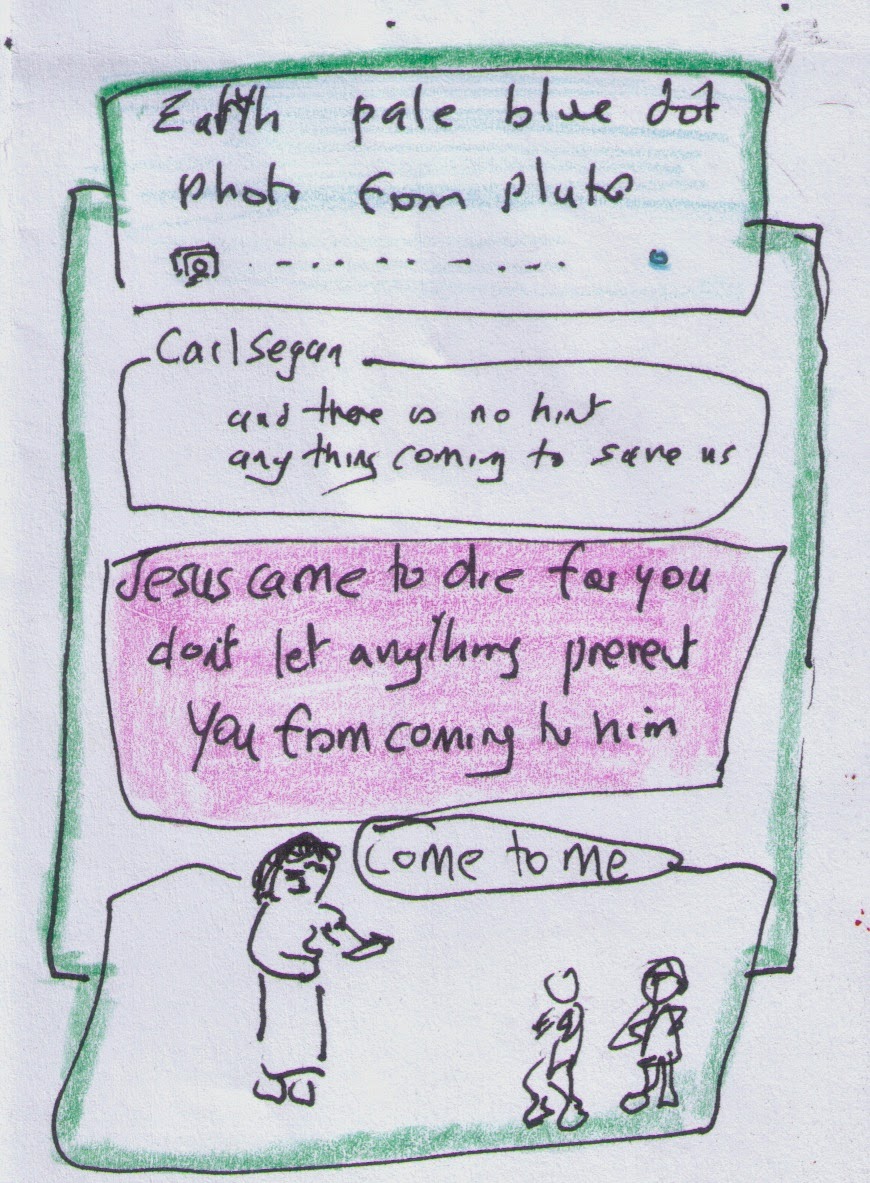 Earth pale blue dot
photo from pluto
Carl Segan
and there is no hint
anything coming to save us
Jesus came to die for you
dont let anything prevent
you from coming to him
Come to me